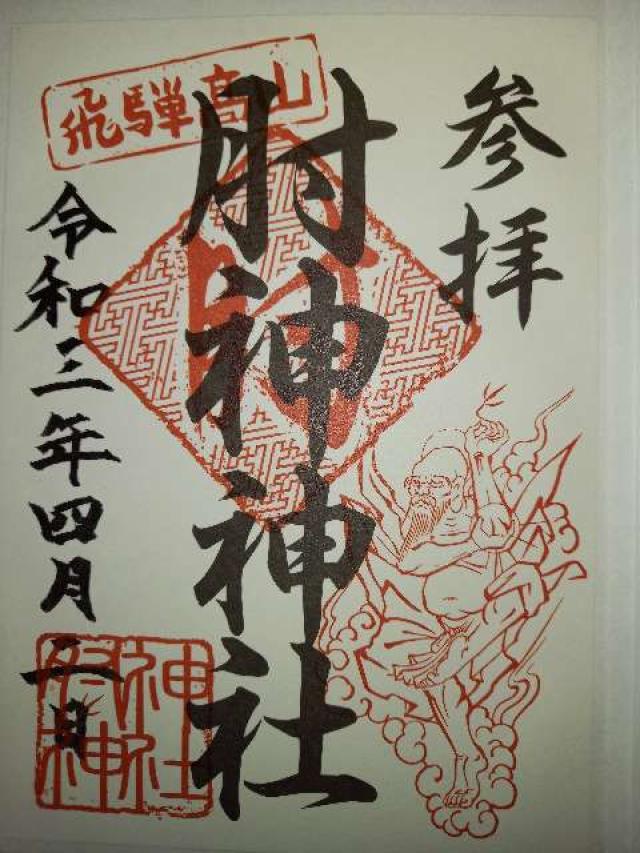 参拝
飛騨高山
肘神神社
令和三年四月二日
肘神
神社